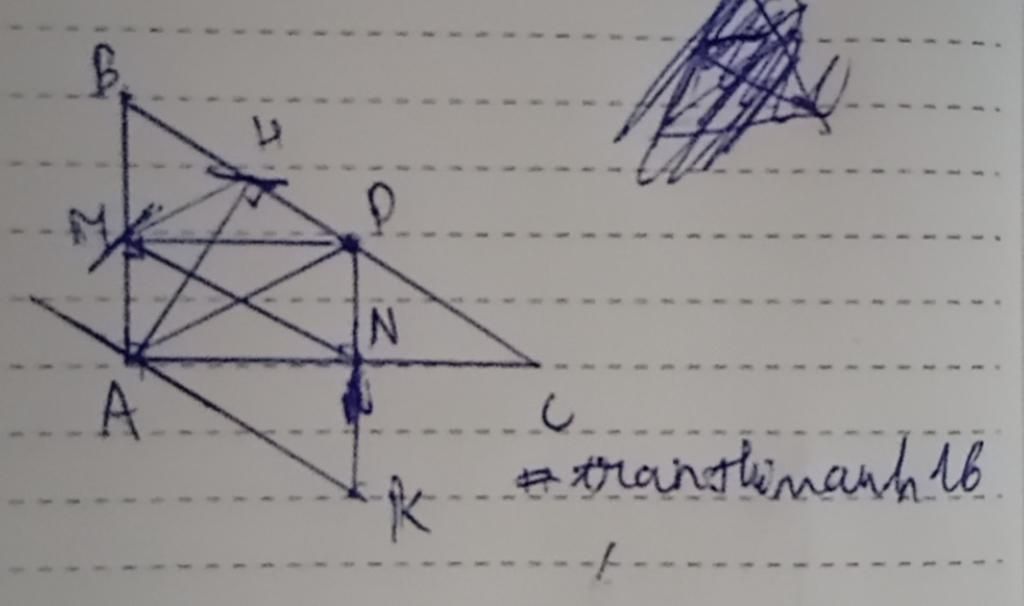 B
H
M
D
N
A
C
K
#tranthimanh16